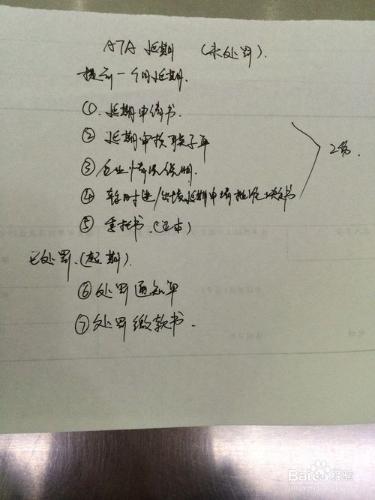 ATA 延期 (未处罚).
提前一个月延期.
① 延期申请书.
② 延期审核联系单
③ 企业情况说明
④ 暂时进/出境延期申请批准决定书
⑤ 委托书.(正本)
2份.
已处罚.(超期)
⑥ 处罚通知单
⑦ 处罚缴款书.
Baidu经验